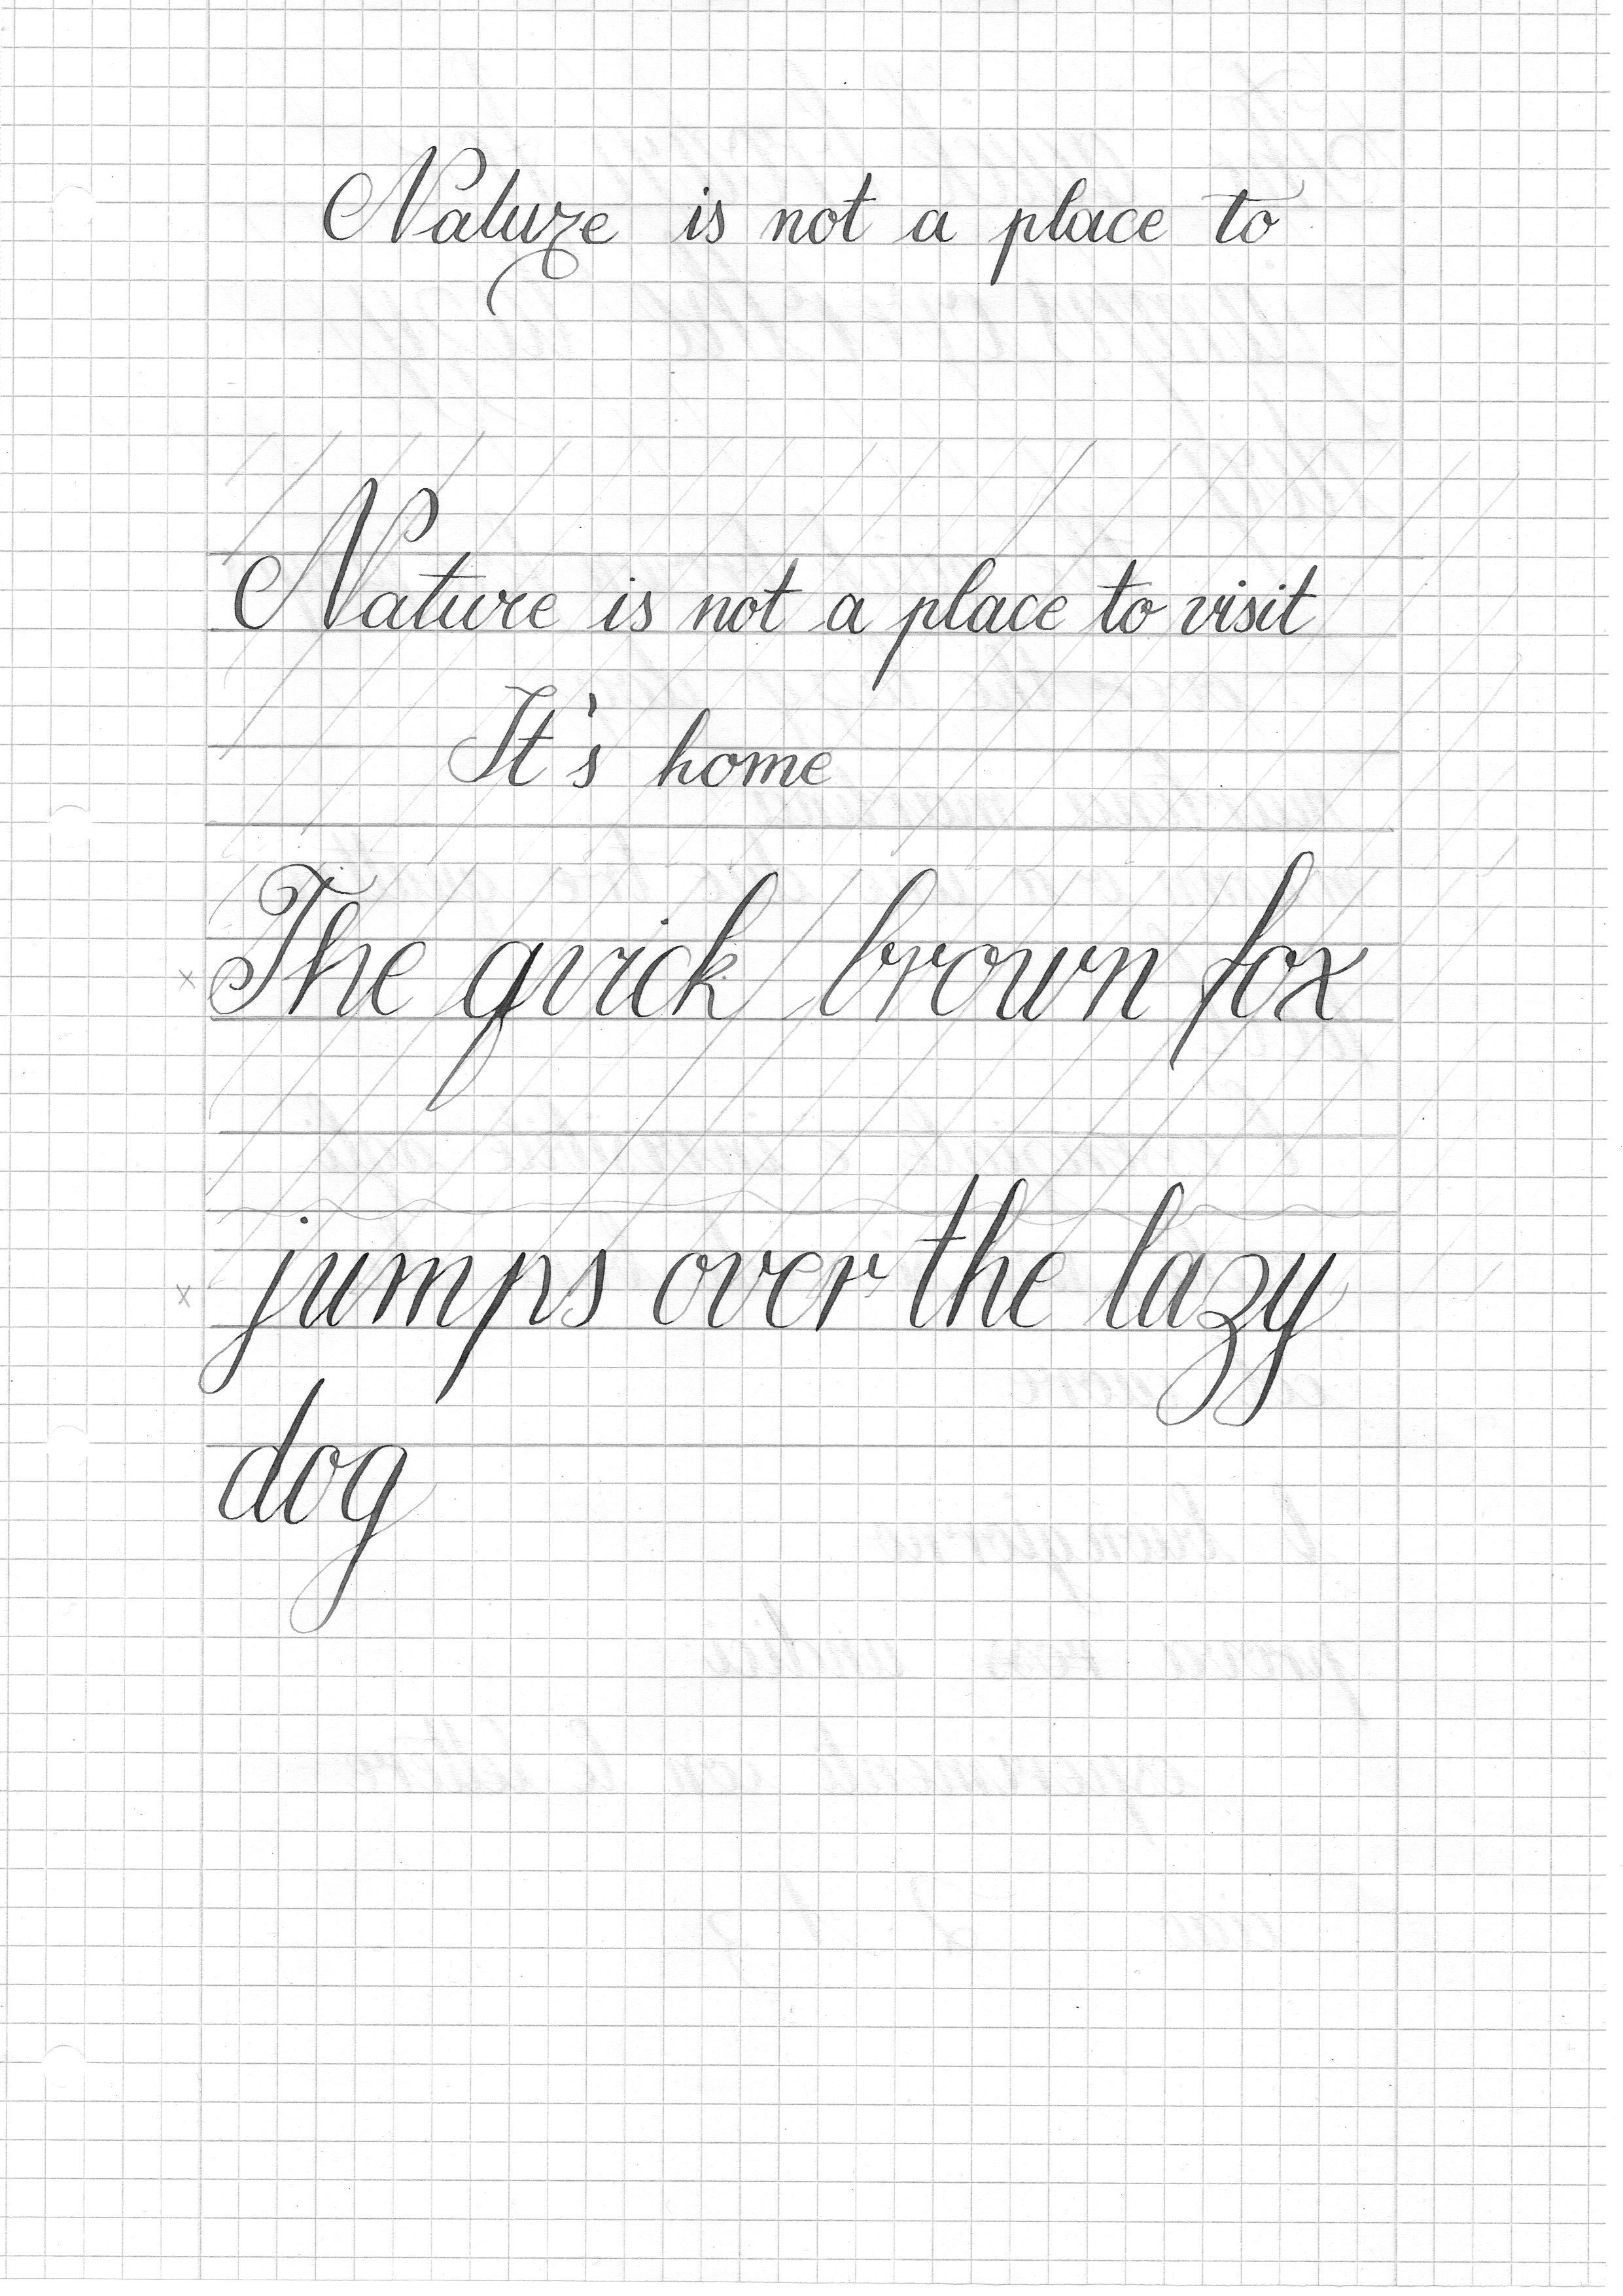 Nature is not a place to
Nature is not a place to visit
It's home
The quick brown fox
x
jumps over the lazy
x
dog